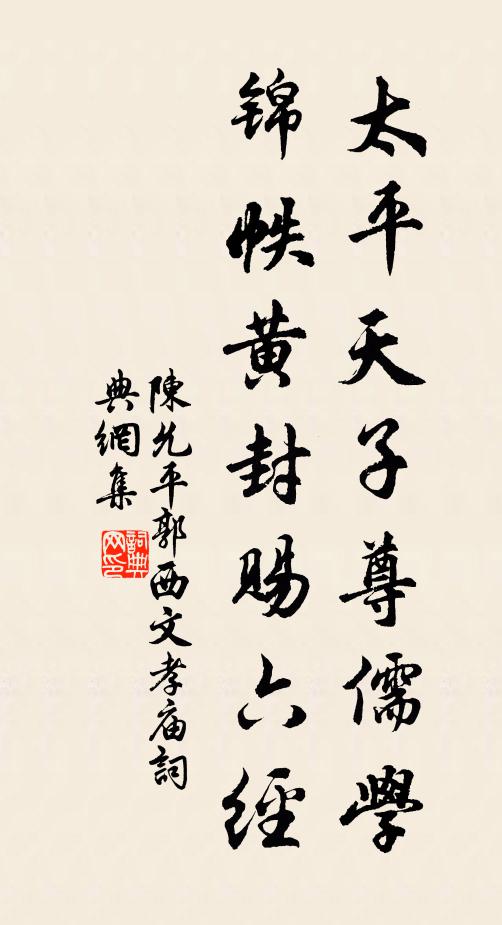 太平天子尊儒學
锦帙黄封賜六經
陳允平郭西文孝庙詞
典網集
詞典网印